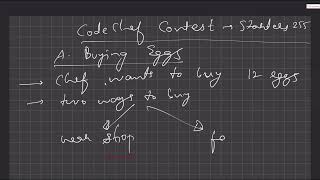 CodeChef Contest → Starters 255
A. Buying Eggs
→ Chef wants to buy 12 eggs
→ two ways to buy
near shop fo